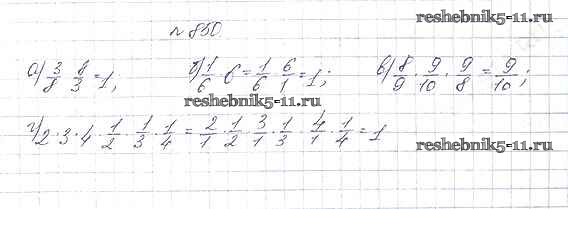 reshebnik5-11.ru
№ 850
а) 3/8 · 8/3 = 1; б) 1/6 · 6 = 1/6 · 6/1 = 1; в) 8/9 · 9/10 · 9/8 = 9/10;
reshebnik5-11.ru
г) 2 · 3 · 4 · 1/2 · 1/3 · 1/4 = 2/1 · 1/2 · 3/1 · 1/3 · 4/1 · 1/4 = 1
reshebnik5-11.ru